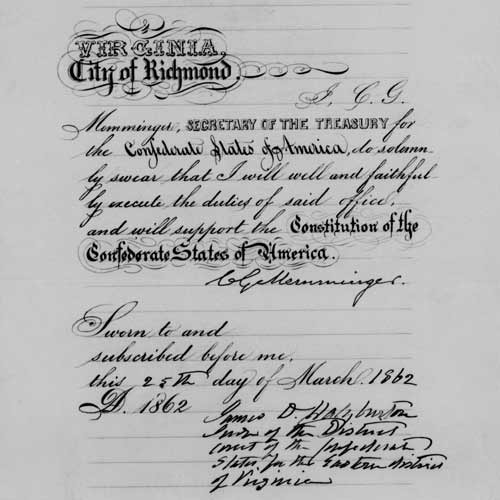 VIRGINIA,
City of Richmond,
I, C. G.
Memminger, SECRETARY OF THE TREASURY for
the Confederate States of America, do solemn
ly swear that I will well and faithful
ly execute the duties of said office,
and will support the Constitution of the
Confederate States of America.
C G Memminger.
Sworn to and
subscribed before me,
this 25th day of March. 1862
A. 1862
James D. Halyburton
Judge of the District
court of the Confederate
States for the Eastern district
of Virginia